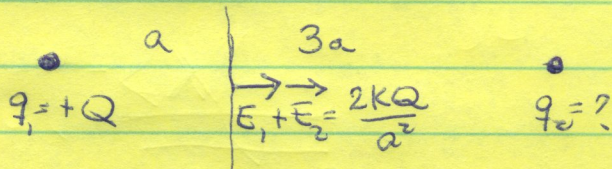 a 3a
q₁=+Q E₁+E₂= 2KQ/a² q₂=?